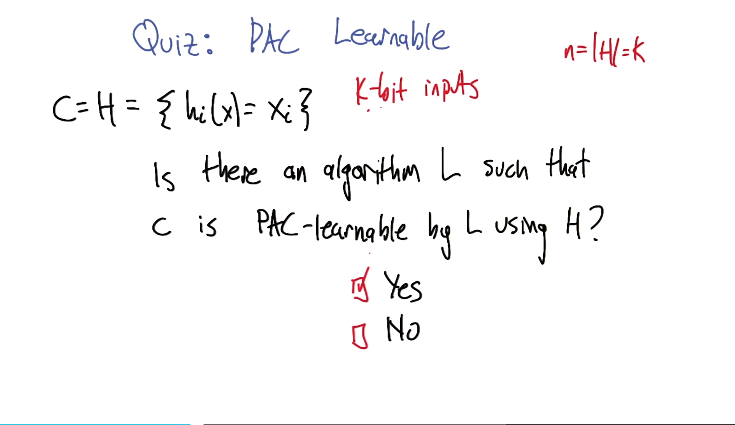 Quiz: PAC Learnable
n=|H|=k
C=H = {hi(x)= xi}
k-bit inputs
Is there an algorithm L such that
C is PAC-learnable by L using H?
Yes
No